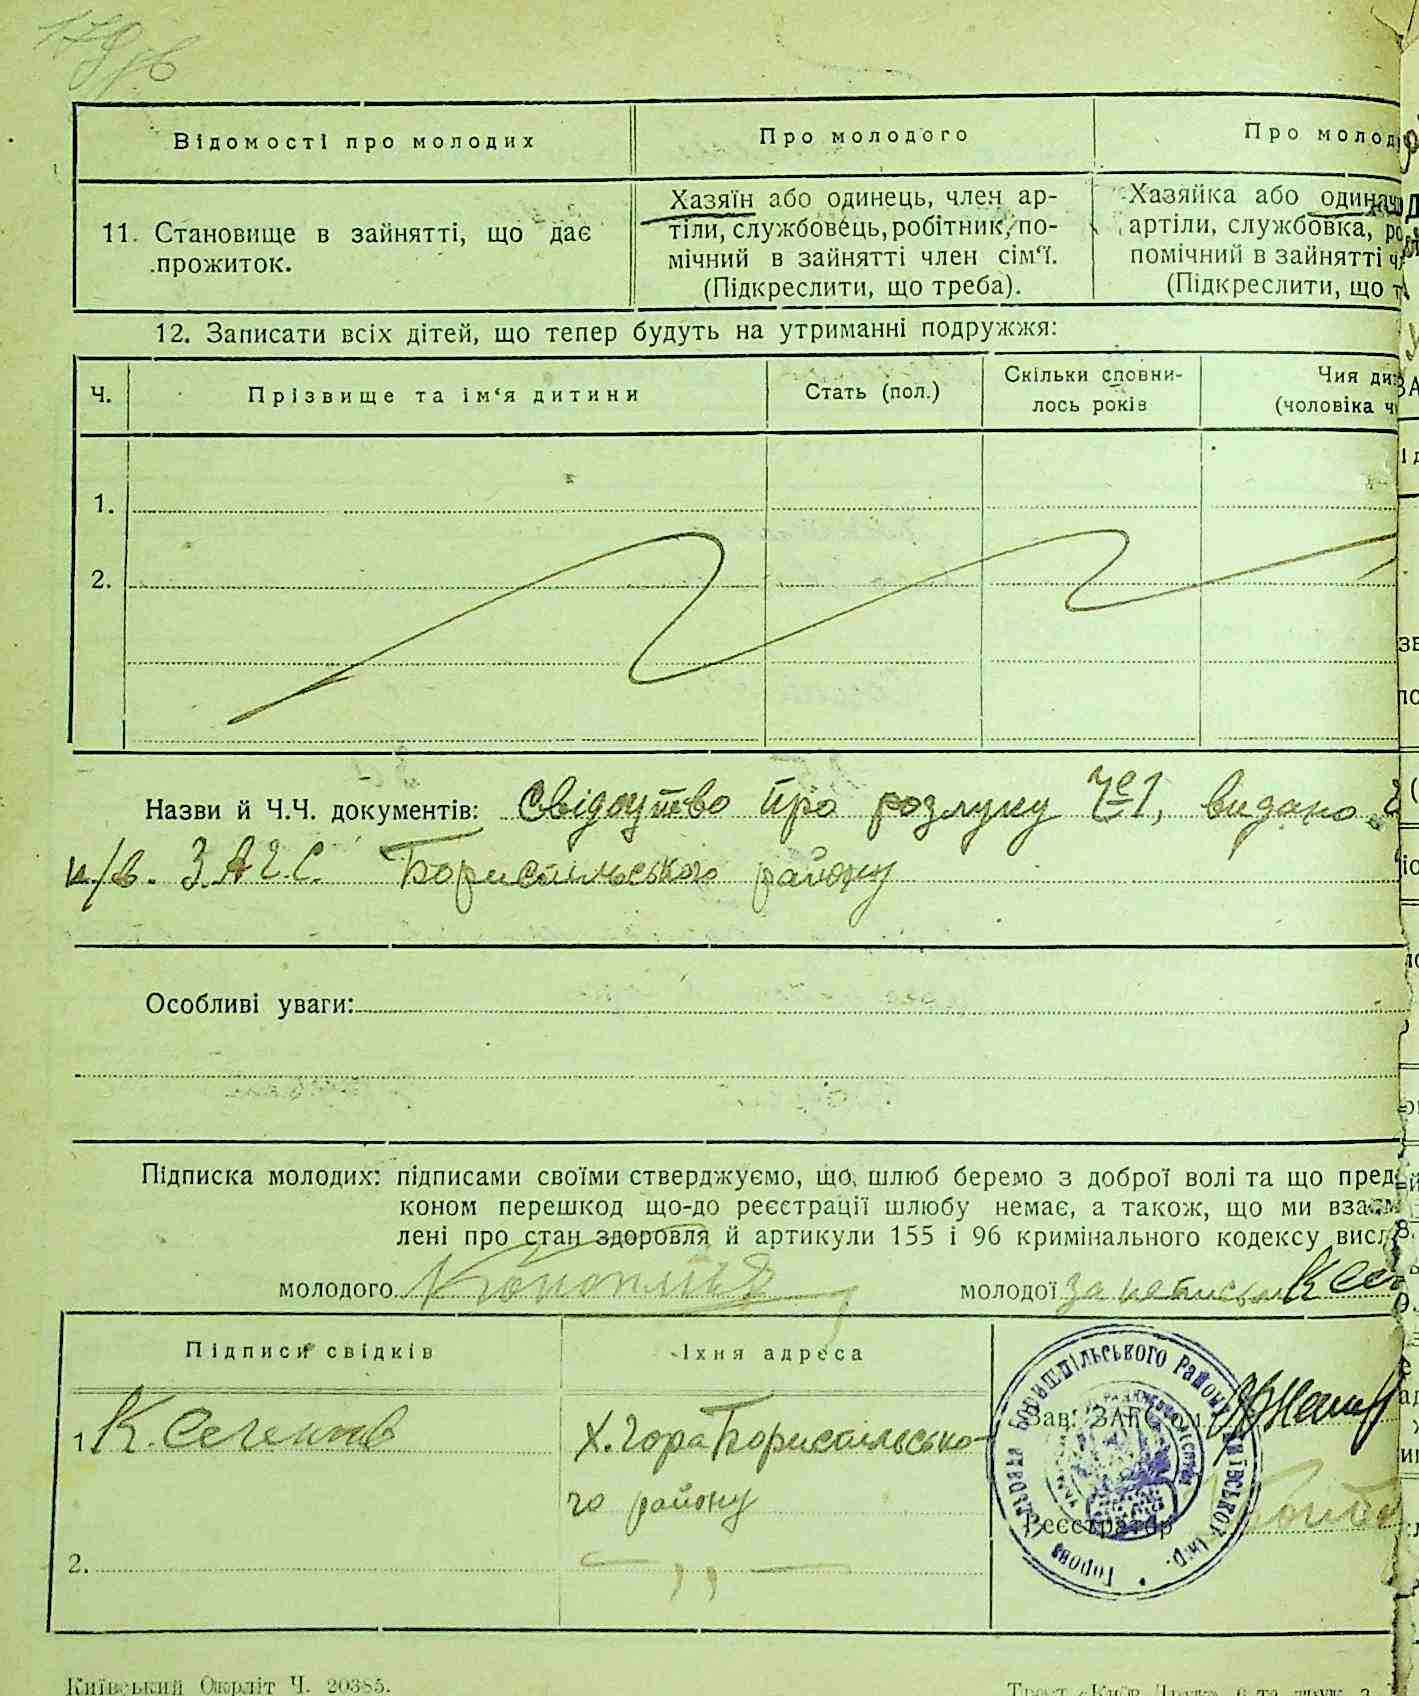 Відомості про молодих
Про молодого
Про молод
11. Становище в зайнятті, що дає
прожиток.
Хазяїн або одинець, член ар-
тіли, службовець, робітник, по-
мічний в зайнятті член сім‘ї.
(Підкреслити, що треба).
Хазяйка або одинач
артіли, службовка, ро
помічний в зайнятті ч
(Підкреслити, що т
12. Записати всіх дітей, що тепер будуть на утриманні подружжя:
Ч.
Прізвище та ім‘я дитини
Стать (пол.)
Скільки сповни-
лось років
Чия ди
(чоловіка ч
1.
2.
Назви й Ч.Ч. документів: Свідоцтво про розлуку Ч 1, видано
н/в. З.А.Г.С. Бориспільського району
Особливі уваги:
Підписка молодих: підписами своїми стверджуємо, що шлюб беремо з доброї волі та що пред
коном перешкод що-до реєстрації шлюбу немає, а також, що ми взаєм
лені про стан здоровля й артикули 155 і 96 кримінального кодексу висл
молодого
молодої за неписьм
Підписи свідків
Їхня адреса
1.
Х. Гора Бориспільсько-
го району
2.
— „ —
Зав. ЗАГС‘ом
Реєстратор
Бориспільського району
Київський Окрліт Ч. 20385.